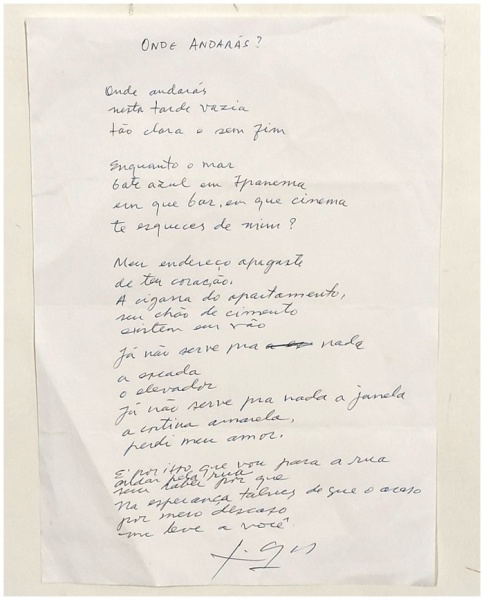 ONDE ANDARÁS?
Onde andarás
nesta tarde vazia
tão clara e sem fim
Enquanto o mar
bate azul em Ipanema
em que bar, em que cinema
te esqueces de mim?
Meu endereço apagaste
de teu coração.
A cigarra do apartamento,
seu chão de cimento
existem em vão
Já não serve pra nada
a escada
o elevador
Já não serve pra nada a janela
a cortina amarela,
perdi meu amor.
E por isso que vou para a rua
andar pela rua
sem saber por que
Na esperança talvez de que o acaso
por mero descaso
me leve a você